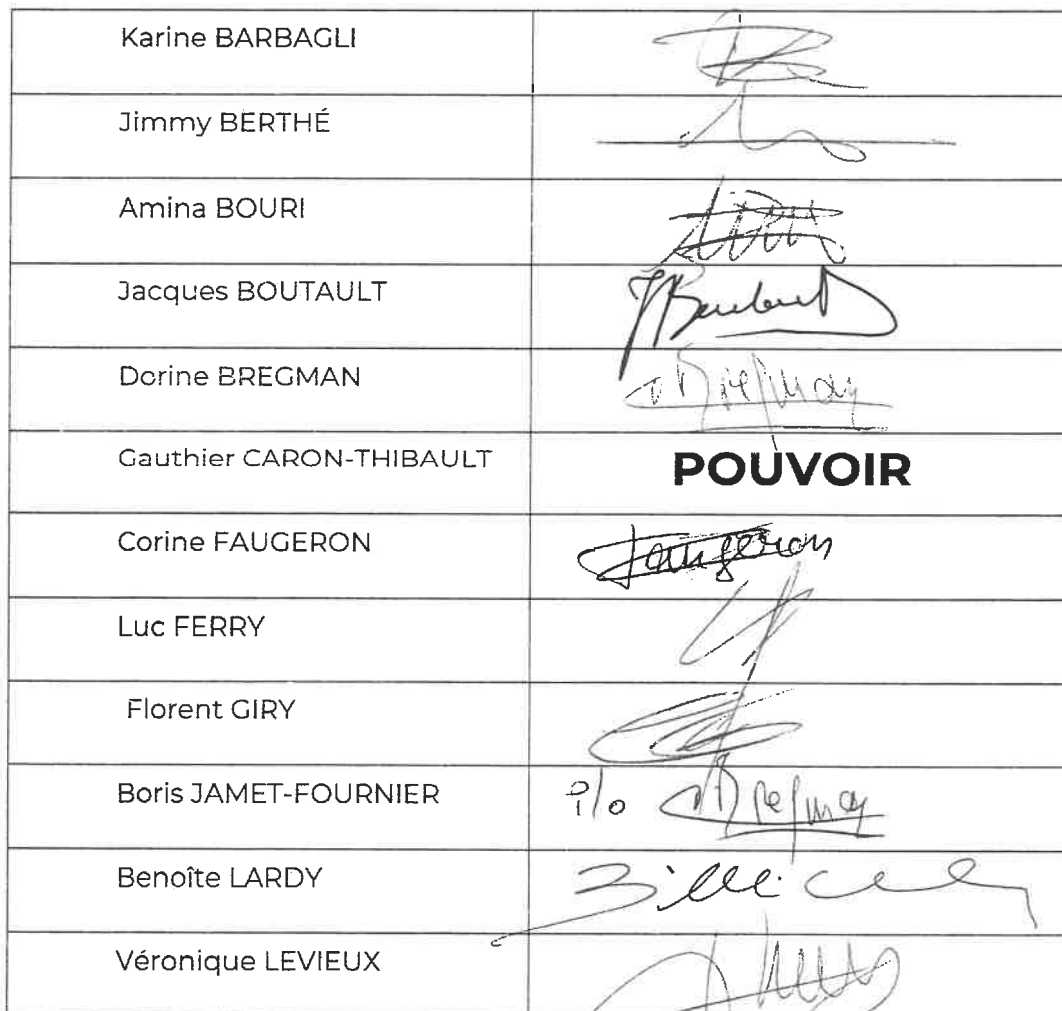 Karine BARBAGLI
Jimmy BERTHÉ
Amina BOURI
Jacques BOUTAULT
JBoutault
Dorine BREGMAN
DBregman
Gauthier CARON-THIBAULT POUVOIR
Corine FAUGERON
Faugeron
Luc FERRY
Florent GIRY
Boris JAMET-FOURNIER
p/o DBregman
Benoîte LARDY
Véronique LEVIEUX